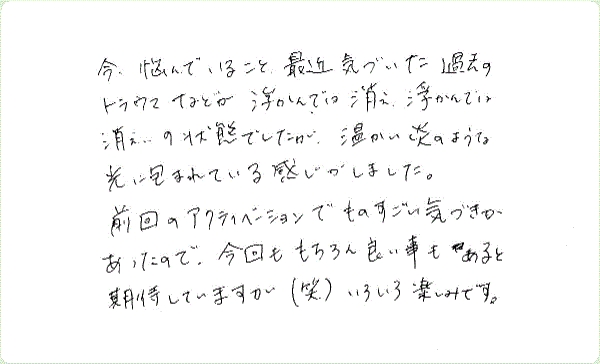 今、悩んでいること、最近気づいた過去の
トラウマなどが浮かんでは消え、浮かんでは
消え、の状態でしたが、温かい炎のような
光に包まれている感じがしました。
前回のアクティベーションでものすごい気づきが
あったので、今回ももちろん良い事もあると
期待していますが（笑）いろいろ楽しみです。